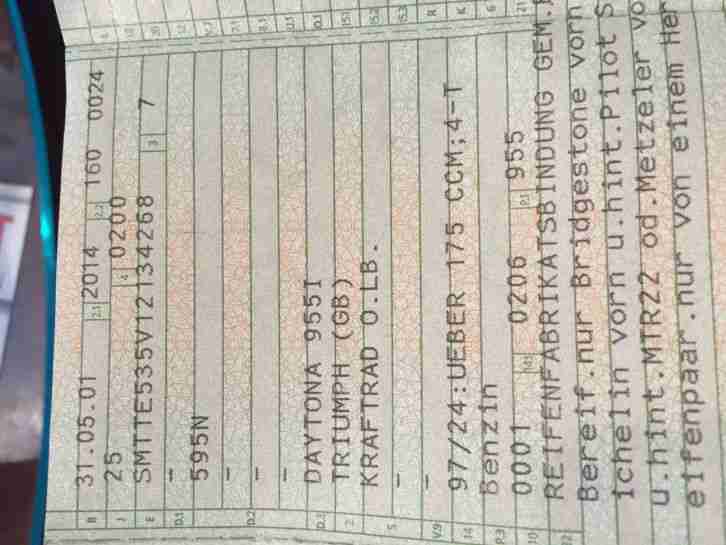 B 31.05.01 2.1 2014 2.2 160 0024
J 25 4 0200
E SMTTE535V12134268 3 7
D.1 -
595N
-
D.2 -
-
D.3 DAYTONA 955I
2 TRIUMPH (GB)
KRAFTRAD O.LB.
5 -
-
V.9 97/24:UEBER 175 CCM;4-T
14
P.3 Benzin
10 0001 14.1 0206 P.1 955
22 REIFENFABRIKATSBINDUNG GEM.
Bereif.nur Bridgestone vorn
ichelin vorn u.hint.Pilot S
u.hint.MTR22 od.Metzeler vo
eifenpaar.nur von einem Her